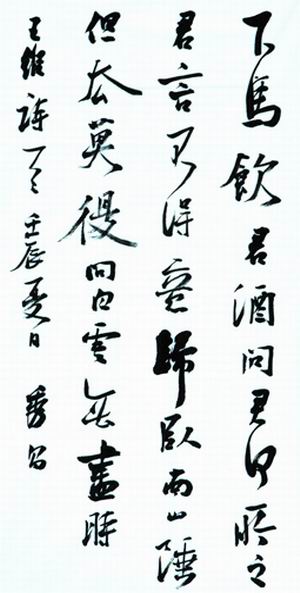 下馬飲君酒問君何所之
君言不得意歸臥南山陲
但去莫復問白雲無盡時
王維詩一首壬辰夏日